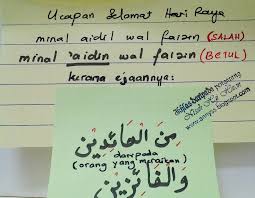 Ucapan Selamat Hari Raya
minal aidil wal faizin (SALAH)
minal 'aidin wal faizin (BETUL)
kerana ejaannya:
مِنَ الْعَائِدِيْنَ
daripada
(orang yang meraikan)
وَالْفَائِزِيْنَ
www.blogspot.com